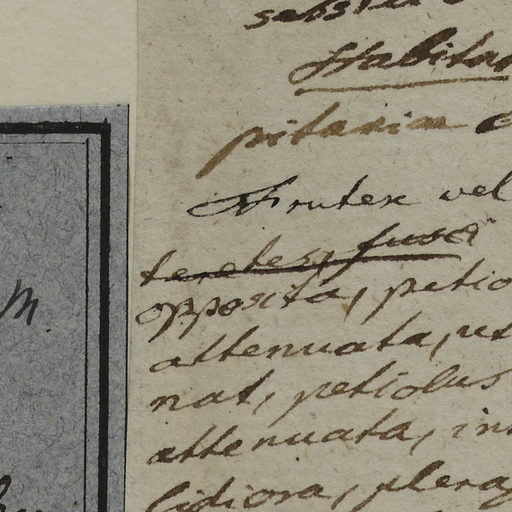 Habitat
pitaniam
Frutex vel
teretes, fusci
opposita, petio
attenuata, ut
nat, petiolus
attenuata, in
lidiora, plera
m